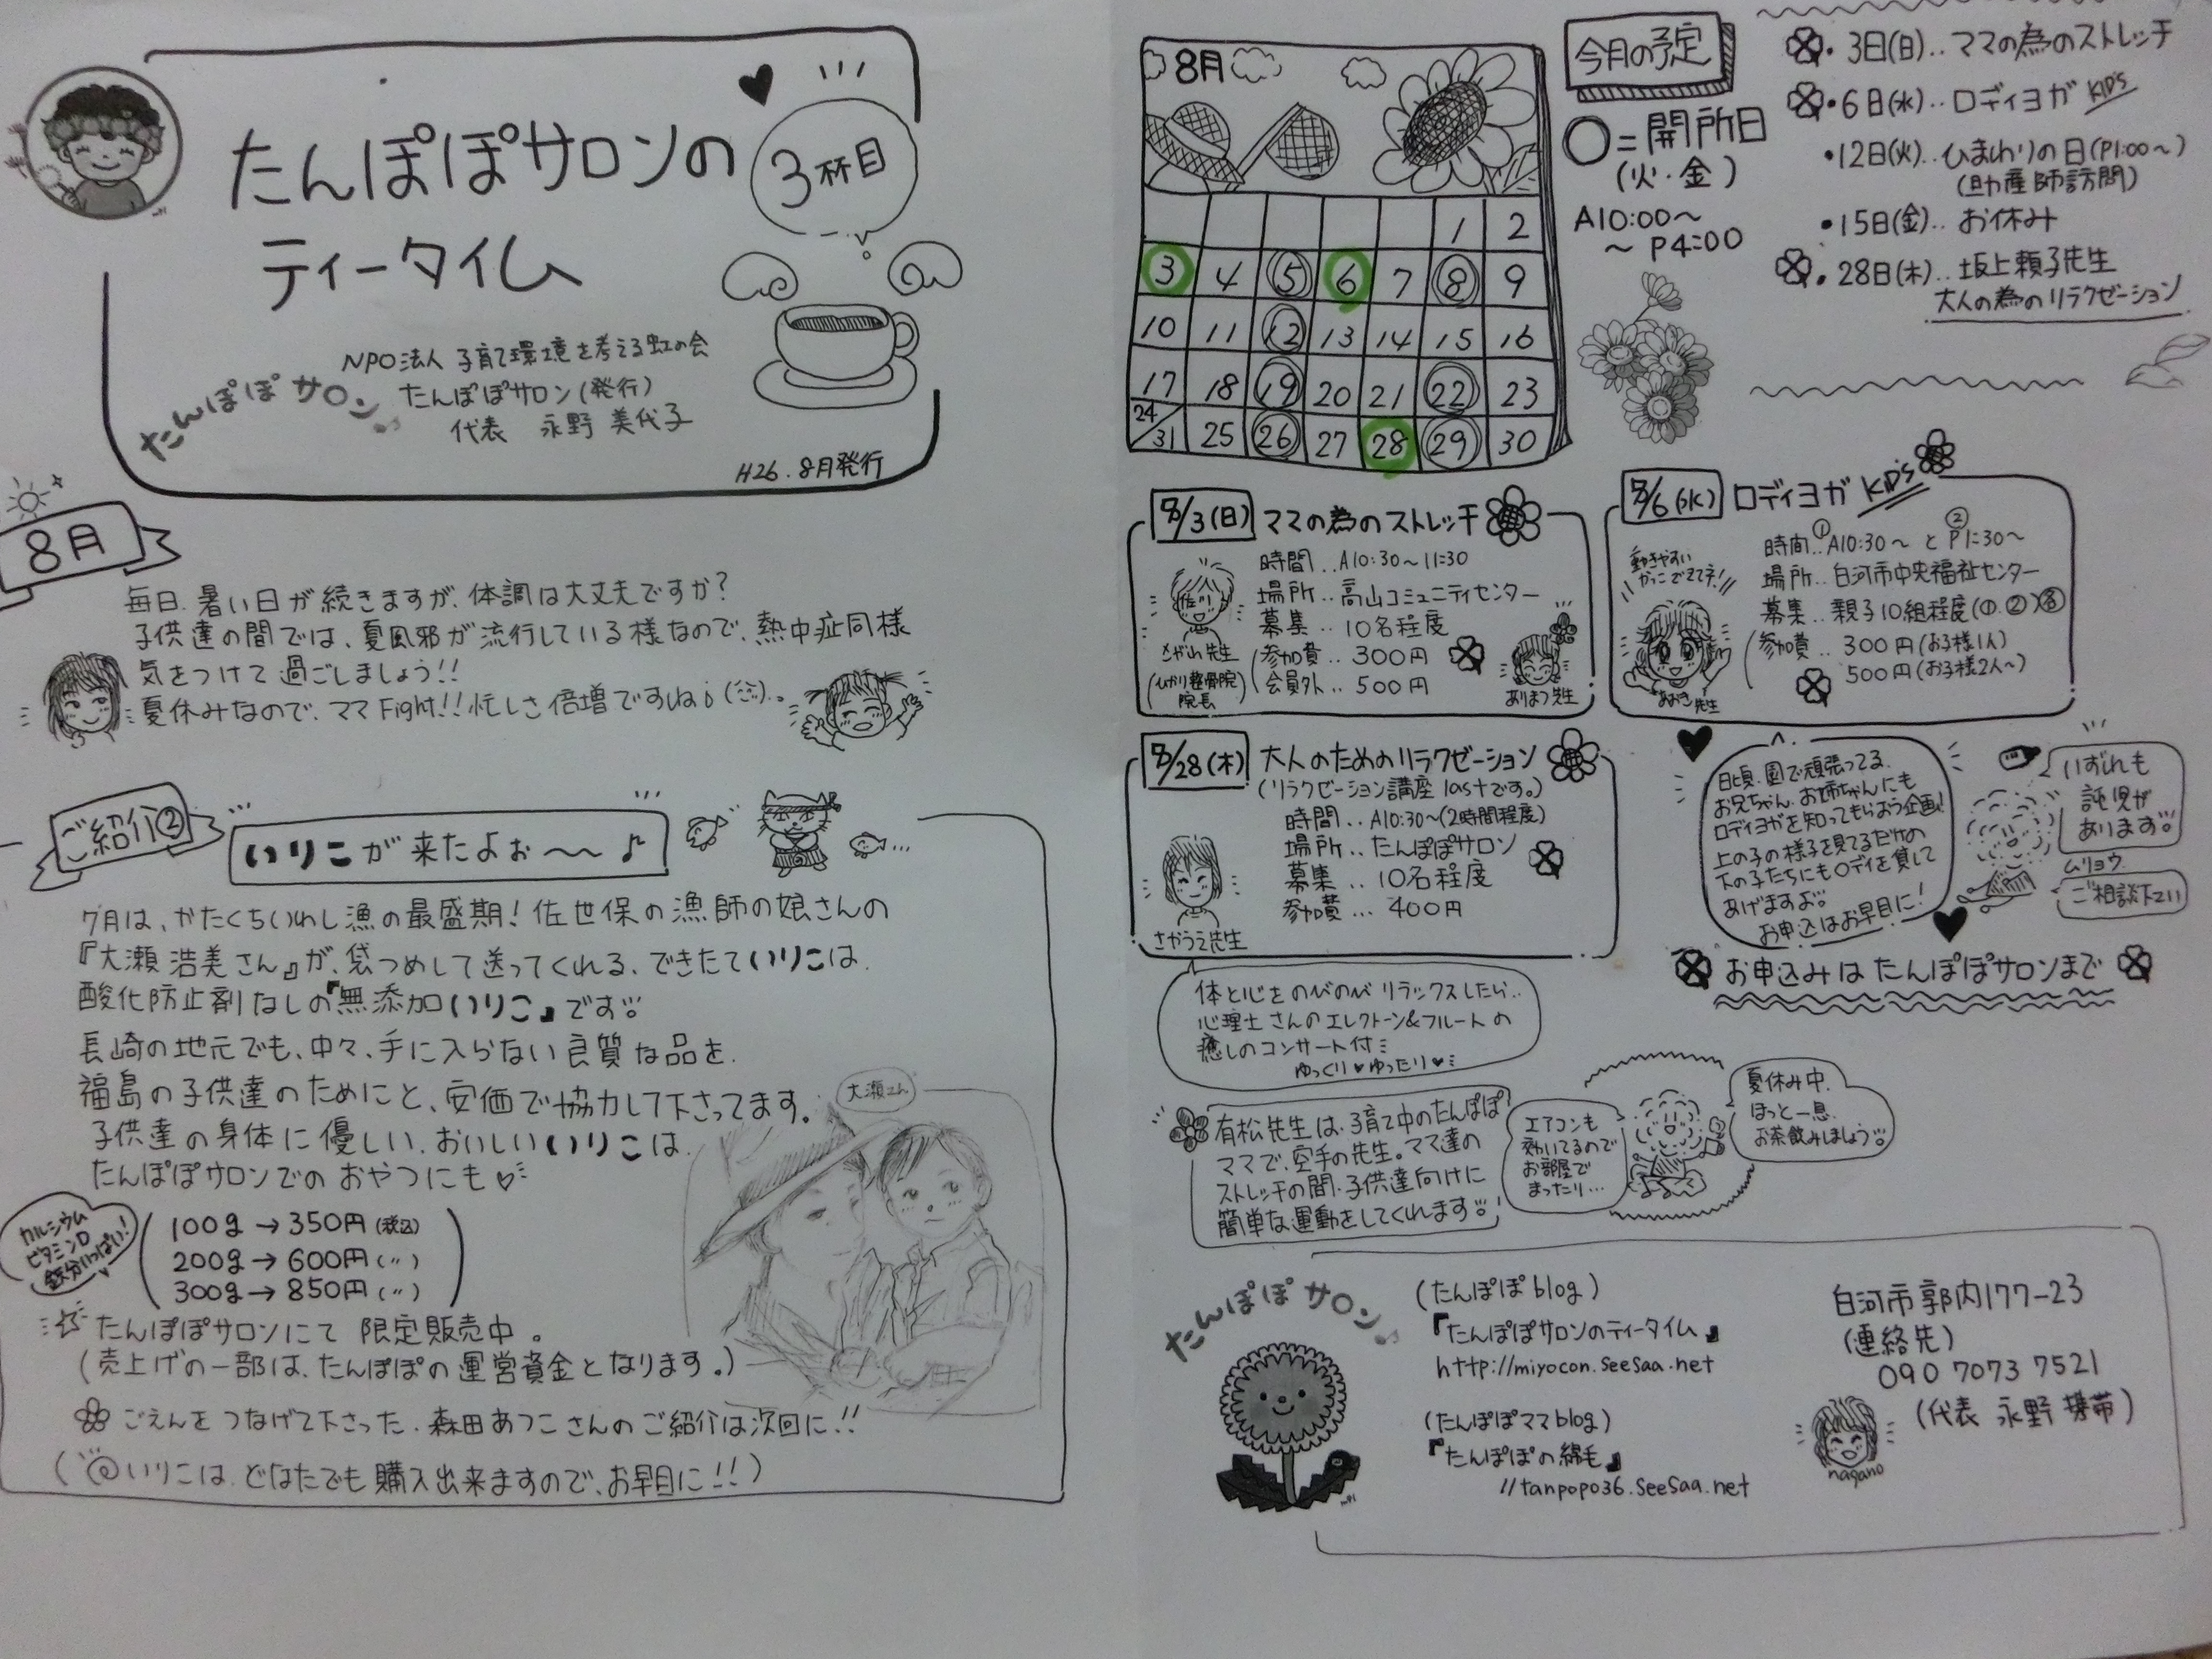 たんぽぽサロンの
ティータイム
3杯目
NPO法人 子育て環境を考える虹の会
たんぽぽサロン(発行)
代表 永野 美代子
たんぽぽサロン♪
H26.8月発行
8月
毎日、暑い日が続きますが、体調は大丈夫ですか?
子供達の間では、夏風邪が流行している様なので、熱中症同様
気をつけて過ごしましょう!!
夏休みなので、ママFight!!忙しさ倍増ですしね
ご紹介②
いりこが来たよぉ〜〜♪
7月は、かたくちいわし漁の最盛期!佐世保の漁師の娘さんの
『大瀬 浩美さん』が、袋つめして送ってくれる、できたていりこは、
酸化防止剤なしの『無添加いりこ』です
長崎の地元でも、中々、手に入らない良質な品を、
福島の子供達のためにと、安価で協力して下さってます。
大瀬さん
子供達の身体に優しい、おいしいいりこは、
たんぽぽサロンでのおやつにも♡
カルシウム
ビタミンD
鉄分いっぱい!
100g→350円(税込)
200g→600円(〃)
300g→850円(〃)
たんぽぽサロンにて 限定販売中。
(売上げの一部は、たんぽぽの運営資金となります。)
ごえんをつなげて下さった、森田あつこさんのご紹介は次回に!!
(いりこは、どなたでも購入出来ますので、お早目に!!)
8月
1 2
3 4 5 6 7 8 9
10 11 12 13 14 15 16
17 18 19 20 21 22 23
24/31 25 26 27 28 29 30
今月の予定
○=開所日
(火・金)
A10:00〜
〜P4:00
・3日(日)‥ママの為のストレッチ
・6日(水)‥ロディヨガ KID's
・12日(火)‥ひまわりの日(P1:00〜)
(助産師訪問)
・15日(金)‥お休み
・28日(木)‥坂上頼子先生
大人の為のリラクゼーション
8/3(日) ママの為のストレッチ
時間‥A10:30〜11:30
場所‥高山コミュニティセンター
募集‥10名程度
参加費‥300円
会員外‥500円
(ひかり整骨院)
院長
ありまつ先生
8/6(水) ロディヨガ KID's
時間‥①A10:30〜と②P1:30〜
場所‥白河市中央福祉センター
募集‥親子10組程度(①、②)各
参加費‥300円(お子様1人)
500円(お子様2人〜)
動きやすい
かっこできてネ!
あおき先生
8/28(木) 大人のためのリラクゼーション
(リラクゼーション講座lastです。)
時間‥A10:30〜(2時間程度)
場所‥たんぽぽサロン
募集‥10名程度
参加費…400円
さかうえ先生
日頃、園で頑張ってる、
お兄ちゃん、お姉ちゃんにも
ロディヨガを知ってもらおう企画!
上の子の様子を見てるだけの
下の子たちにもロディを貸して
あげますよ
お申込はお早目に!
いずれも
託児が
あります
ムリョウ
ご相談下さい
お申込みはたんぽぽサロンまで
体と心をのびのびリラックスしたら‥
心理士さんのエレクトーン&フルートの
癒しのコンサート付
ゆっくり♥ゆったり♥
有松先生は、子育て中のたんぽぽ
ママで、空手の先生。ママ達の
ストレッチの間、子供達向けに
簡単な運動をしてくれます
エアコンも
効いてるので
お部屋で
まったり…
夏休み中、
ほっと一息、
お茶飲みましょう
たんぽぽサロン♪
(たんぽぽblog)
『たんぽぽサロンのティータイム』
http://miyocon.seesaa.net
(たんぽぽママblog)
『たんぽぽの綿毛』
//tanpopo36.seesaa.net
白河市郭内177-23
(連絡先)
090 7073 7521
(代表 永野 携帯)
nagano